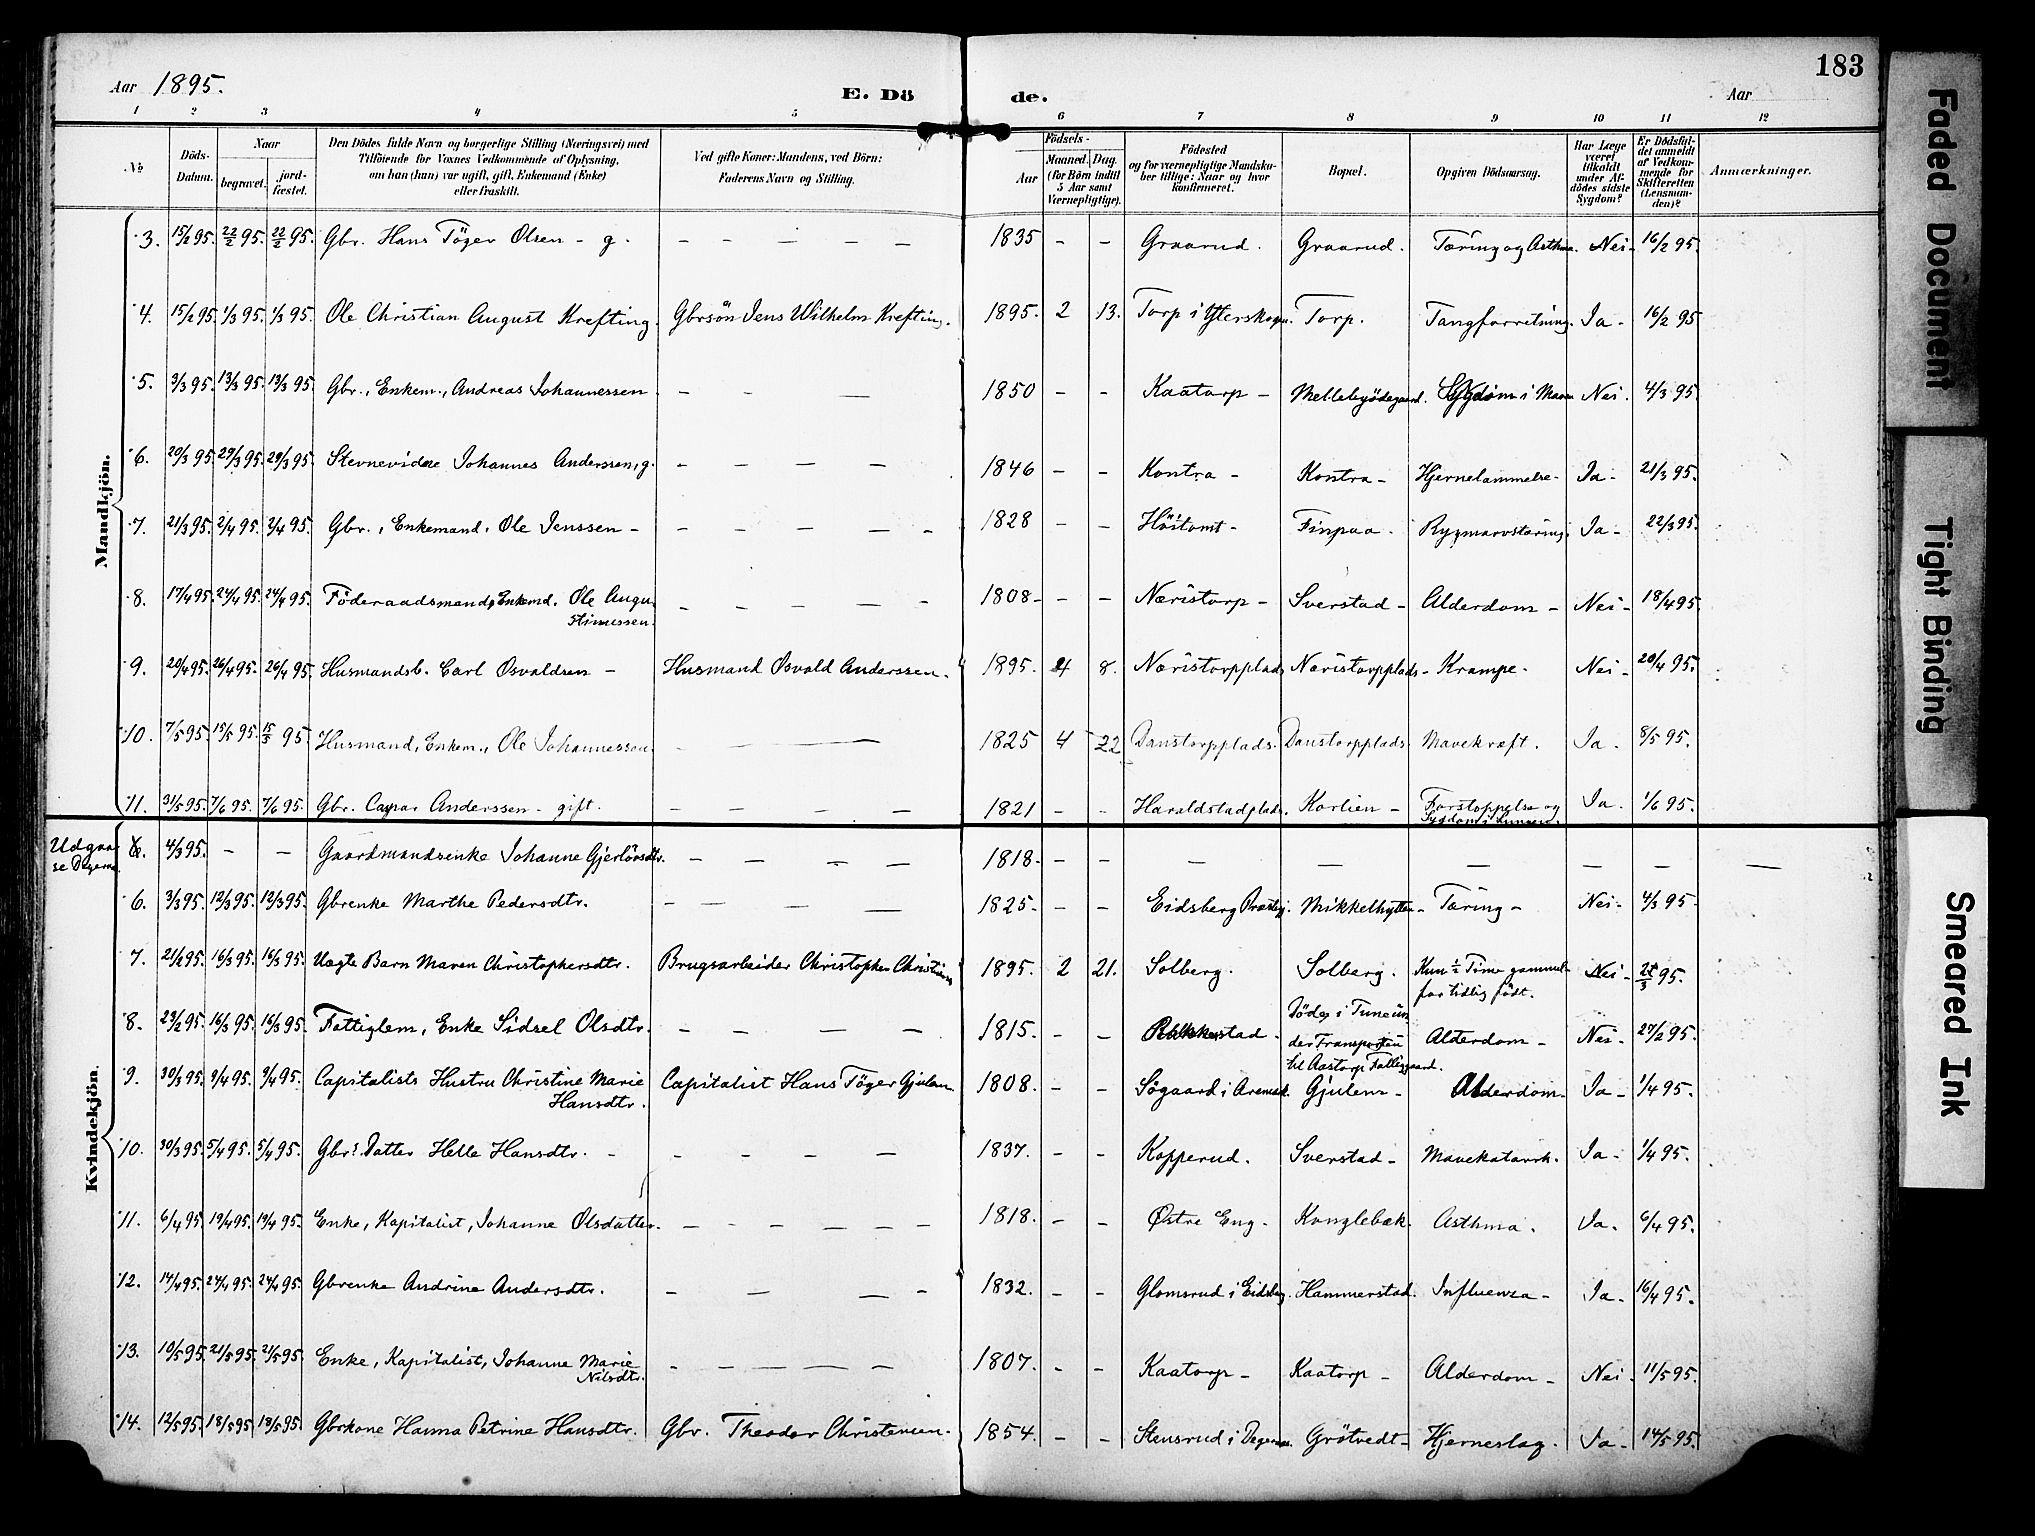 183
Aar 1895.
E. Döde.
Aar
1 2 3 4 5 6 7 8 9 10 11 12
No
Döds-Datum.
Naar
begravet.
jord-fæstet.
Den Dödes fulde Navn og borgerlige Stilling (Næringsvei) med
Tilföiende for Voxnes Vedkommende af Oplysning,
om han (hun) var ugift, gift, Enkemand (Enke)
eller fraskilt.
Ved gifte Koner: Mandens, ved Börn:
Faderens Navn og Stilling.
Födsels-
Aar
Maaned. Dag.
(for Börn indtil
5 Aar samt
Værnepligtige).
Födested
og for værnepligtige Mandska-
ber tillige: Naar og hvor
konfirmeret.
Bopæl.
Opgiven Dödsaarsag.
Har Læge
været
tilkaldt
under Af-
dödes sidste
Sygdom?
Er Dödsfal-
det anmeldt
af Vedkom-
mende for
Skifteretten
(Lensman-
den)?
Anmærkninger.
Mandkjön.
3. 15/2 95. 22/2 95. 22/2 95. Gbr. Hans Töger Olsen - g. - - - - - 1835 - - Graarud. Graarud. Tæring og Asthma. Nei - 16/2 95.
4. 15/2 95. 1/3 95. 1/3 95. Ole Christian August Krefting. Gbrsön Jens Wilhelm Krefting. 1895. 2 13. Torp i Yterskogn. Torp. Tangforretning. Ja - 16/2 95
5. 3/3 95. 13/3 95. 13/3 95. Gbr., Enkem., Andreas Johannessen - - - 1850 - - Kaatorp - Mellebyödegaard. Sygdom i Maven Nei. 4/3 95
6. 20/3 95. 29/3 95. 29/3 95. Stevnevidne Johannes Anderssen, g. - - - - 1846 - - Kontra - Kontra - Hjernelammelse - Ja - 21/3 95.
7. 21/3 95. 2/4 95. 2/4 95. Gbr., Enkemand, Ole Jenssen - - - - - 1828 - - Höitomt - Finpaa. Rygmarvstæring. Ja - 22/3 95.
8. 17/4 95. 24/4 95. 24/4 95. Föderaadsmand, Enkemd. Ole Augu-
stinussen. - - - - - 1808 - - - Næristorp - Sverstad - Alderdom - Nei - 18/4 95.
9. 20/4 95. 26/4 95. 26/4 95. Husmandsb. Carl Osvaldsen - Husmand Osvald Anderssen. 1895. 4 8. Næristorpplads Næristorpplads - Krampe - Nei - 20/4 95.
10. 7/5 95. 15/5 95. 15/5 95 Husmand, Enkem., Ole Johannessen - - - 1825 4 22 Danstorpplads. Danstorpplads. Mavekræft. Ja. 8/5 95.
11. 31/5 95. 7/6 95. 7/6 95. Gbr. Caspar Anderssen - gift. - - - - 1821 - - Haraldstadplads. Korlien - Forstoppelse og
Sygdom i Lungen. Ja. 1/6 95.
Kvindekjön.
Udgaar
se Degernes 4/3 95. - - Gaardmandsenke Johanne Gjerlövsdtr. - - - - 1818 - - - - - - - - -
6. 3/3 95. 12/3 95. 12/3 95. Gbrenke Marthe Pedersdtr. - - - - 1825. - - Eidsberg Præstgj. Mikkelhytten - Tæring - Nei - 4/3 95
7. 21/2 95. 16/3 95. 16/3 95. Uægte Barn Maren Christophersdtr. Brugsarbeider Christopher 1895. 2 21. Solberg. Solberg. Kun ½ Time gammel
for tidlig födt. Nei - 95.
8. 23/2 95. 16/3 95. 16/3 95. Fattiglem, Enke Sidsel Olsdtr. - - - - 1815. - - Rakkestad - Döde i Tune un-
der Transporten
til Aastorp Fattiggaard. Alderdom - Nei - 27/2 95.
9. 30/3 95. 9/4 95. 9/4 95. Capitalists Hustru Christine Marie
Hansdtr. Capitalist Hans Töger Gjulem 1808. - - Sögaard i Aremark. Gjulem - Alderdom - Ja - 1/4 95.
10. 30/3 95. 5/4 95. 5/4 95. Gbrs. Datter Helle Hansdtr. - - - - - 1837. - - Kopperud. Sverstad - Mavekatarrh. Ja - 1/4 95.
11. 6/4 95. 19/4 95. 19/4 95. Enke, Kapitalist, Johanne Olsdatter. - - - - - - 1818. - - Østre Eng - Konglebæk. Asthma. Ja. 6/4 95.
12. 14/4 95. 24/4 95. 24/4 95. Gbrenke Andrine Andersdtr. - - - - 1832. - - Glomsrud i Eidsberg. Hammerstad. Influensa - Ja - 16/4 95.
13. 10/5 95. 21/5 95. 21/5 95. Enke, Kapitalist, Johanne Marie
Nilsdtr. - - - - - 1807. - - Kaatorp - Kaatorp - Alderdom - Nei - 11/5 95.
14. 12/5 95. 18/5 95. 18/5 95. Gbrkone Hanna Petrine Hansdtr. Gbr. Theodor Christensen. 1854. - - Stensrud i Degernes. Grötvedt - Hjerneslag. Ja - 14/5 95.
Faded Document
Tight Binding
Smeared Ink